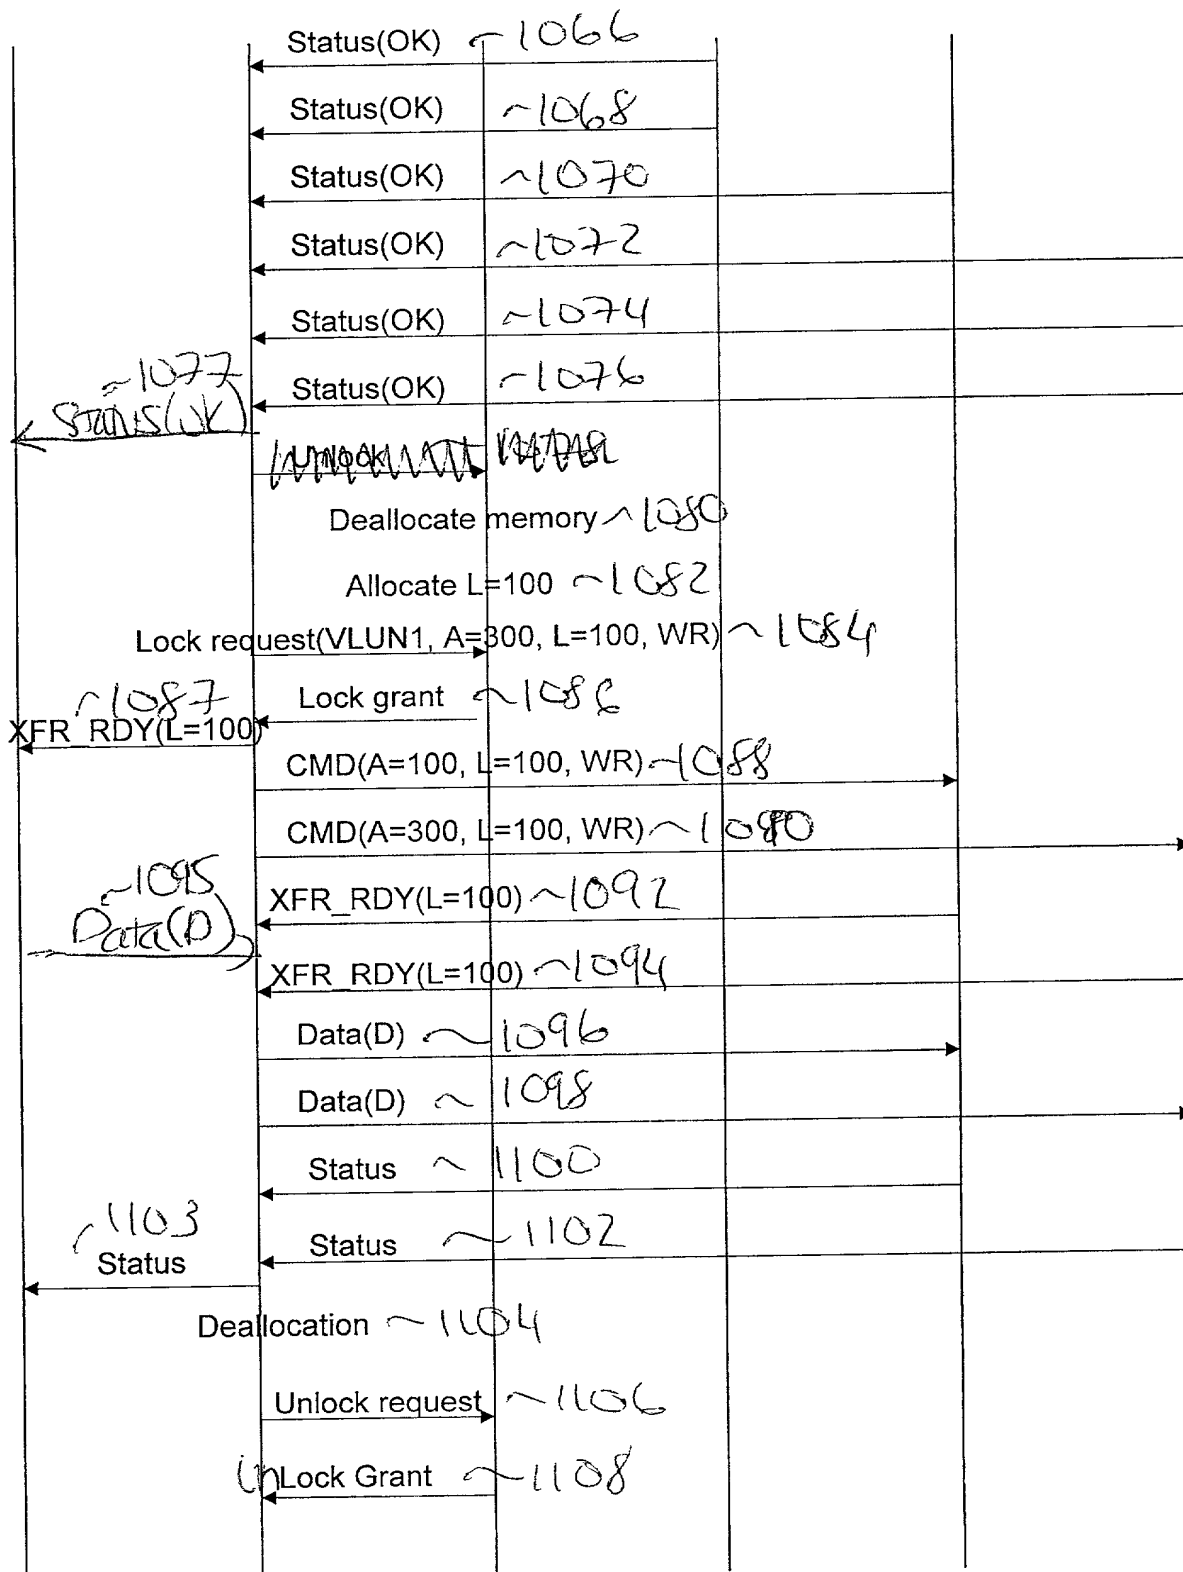 Status(OK) ~1066
Status(OK) ~1068
Status(OK) ~1070
Status(OK) ~1072
Status(OK) ~1074
~1077
Status(OK) ~1076
Status(OK)
Unlock
Deallocate memory ~1080
Allocate L=100 ~1082
Lock request(VLUN1, A=300, L=100, WR) ~1084
~1087 Lock grant ~1086
XFR_RDY(L=100)
CMD(A=100, L=100, WR) ~1088
CMD(A=300, L=100, WR) ~1090
~1095
XFR_RDY(L=100) ~1092
Data(D)
XFR_RDY(L=100) ~1094
Data(D) ~1096
Data(D) ~1098
Status ~1100
~1103
Status ~1102
Status
Deallocation ~1104
Unlock request ~1106
UnLock Grant ~1108